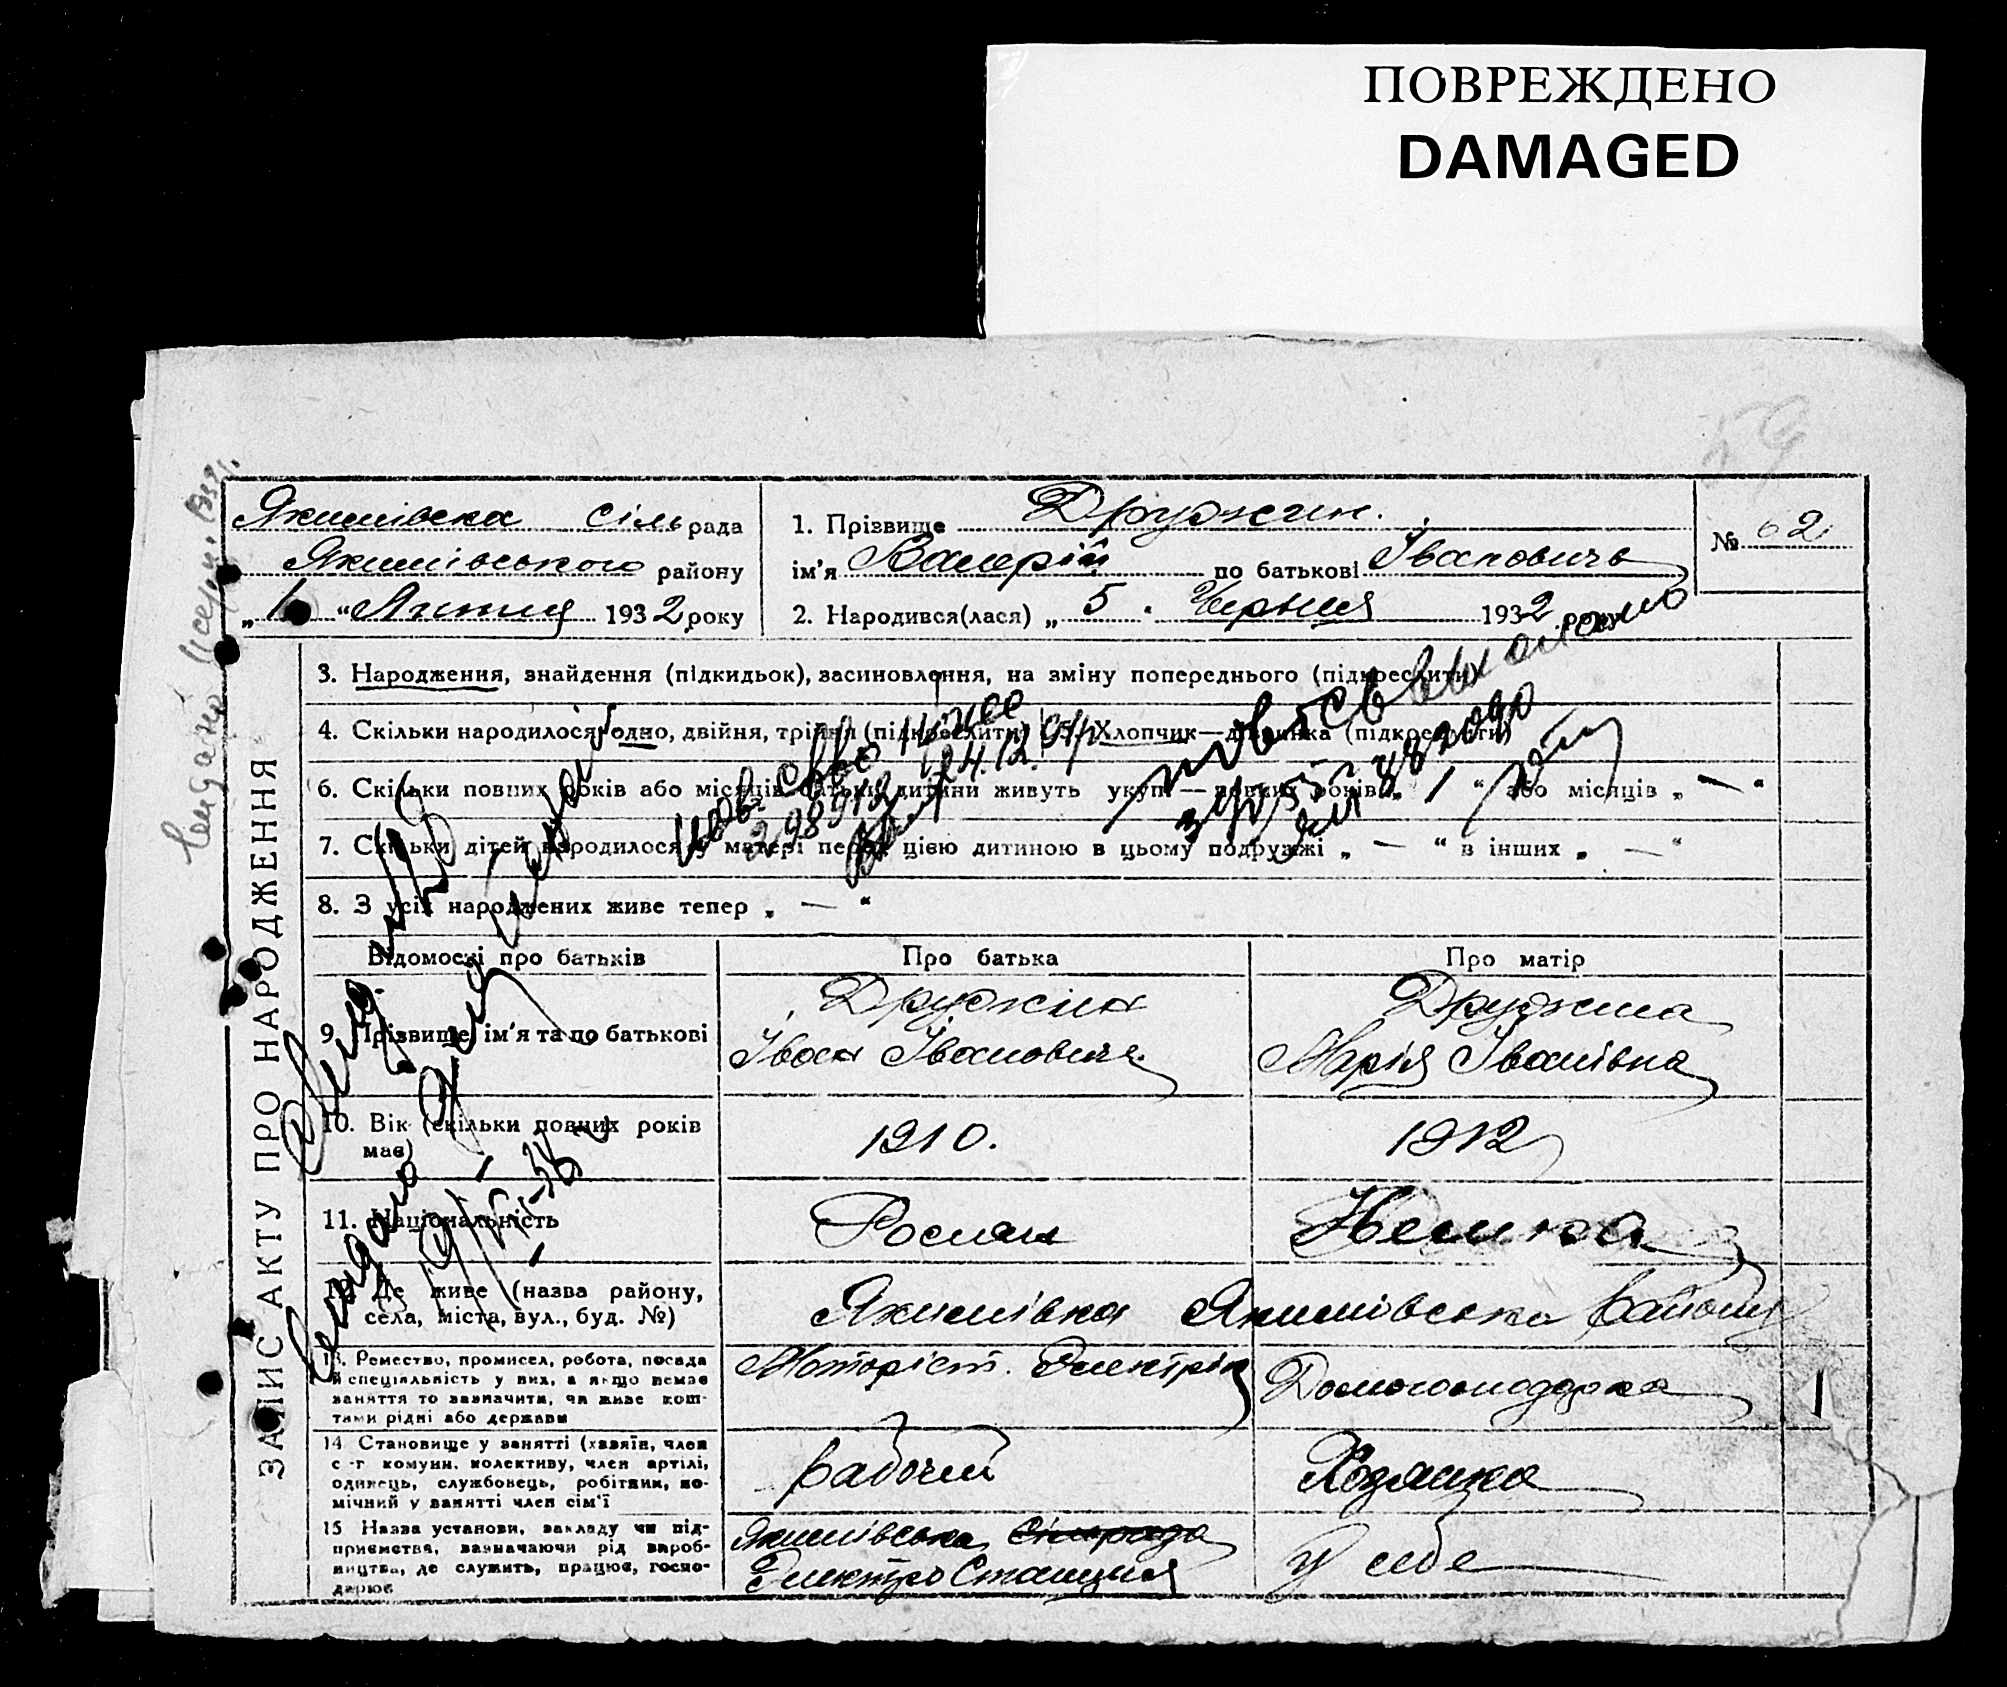 ПОВРЕЖДЕНО
DAMAGED
59
ЗАПИС АКТУ ПРО НАРОДЖЕННЯ
Якимівска сільрада
Якимівського району
„ 1 “ Липня 1932 року
1. Прізвище Дружин.
ім'я Валерій по батькові Івановичь
2. Народився(лася) „ 5 „ Черьния 1932 року
№ 62
3. Народження, знайдення (підкидьок), засиновлення, на зміну попереднього (підкреслити)
4. Скільки народилося: одно, двійня, трійня (підкреслити) 5. Хлопчик—дівчинка (підкреслити)
6. Скільки повних років або місяців батьки дитини живуть укупі — повних років „ 1 “ або місяців „ — “
7. Скільки дітей народилося у матері перед цією дитиною в цьому подружжі „ — “ в інших „ — “
8. З усіх народжених живе тепер „ — “
Відомості про батьків Про батька Про матір
9. Прізвище, ім'я та по батькові
Дружин
Іван Іванович
Дружина
Марія Іванівна
10. Вік (скільки повних років
має)
1910. 1912
11. Національність Росиян Немка
12. Де живе (назва району,
села, міста, вул., буд. №)
Якимівка Якимівська району
13. Ремество, промисел, робота, посада
й спеціяльність у них, а якщо немає
заняття то зазначити, чи живе кош-
тами рідні або держави
Моторіст. Электрік
Домогосподарка
1
14 Становище у занятті (хазяїн, член
с-г комуни, колективу, член артілі,
одинець, службовець, робітник, по-
мічний у занятті член сім'ї
рабочий
Хозяика
15 Назва установи, закладу чи під-
приємства, зазначаючи рід вироб-
ництва, де служить, працює, госпо-
дарює
Якимівська Сільрада
Электро Станция
У себе